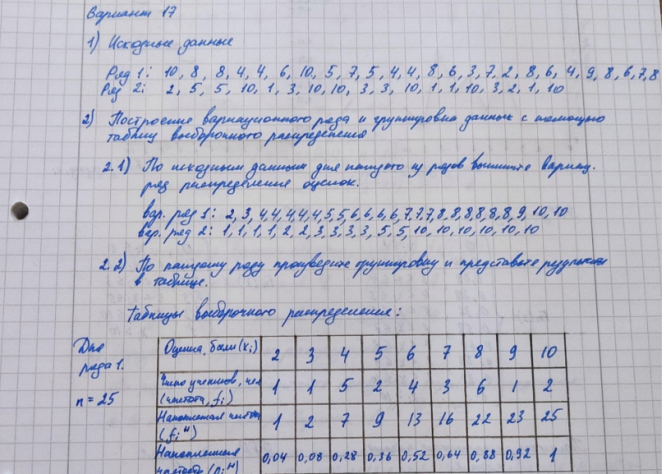 Вариант 17
1) Исходные данные
Ряд 1: 10, 8, 8, 4, 4, 6, 10, 5, 7, 5, 4, 4, 8, 6, 3, 7, 2, 8, 6, 4, 9, 8, 6, 7, 8
Ряд 2: 2, 5, 5, 10, 1, 3, 10, 10, 3, 3, 10, 1, 1, 10, 3, 2, 1, 10
2) Построение вариационного ряда и группировка данных с помощью
таблиц выборочного распределения
2.1) По исходным данным для каждого из рядов выпишите вариац.
ряд распределение оценок.
вар. ряд 1: 2, 3, 4, 4, 4, 4, 4, 5, 5, 6, 6, 6, 6, 7, 7, 7, 8, 8, 8, 8, 8, 8, 9, 10, 10
вар. ряд 2: 1, 1, 1, 1, 2, 2, 3, 3, 3, 3, 5, 5, 10, 10, 10, 10, 10, 10
2.2) По каждому ряду произведите группировку и представьте
в таблице.
Таблицы выборочного распределения:
Для ряда 1.
n = 25
Оценка, балл (xi) 2 3 4 5 6 7 8 9 10
Число учеников, чел (частота, fi) 1 1 5 2 4 3 6 1 2
Накопленая (fiн) 1 2 7 9 13 16 22 23 25
Накопленная частость (piн) 0,04 0,08 0,28 0,36 0,52 0,64 0,88 0,92 1